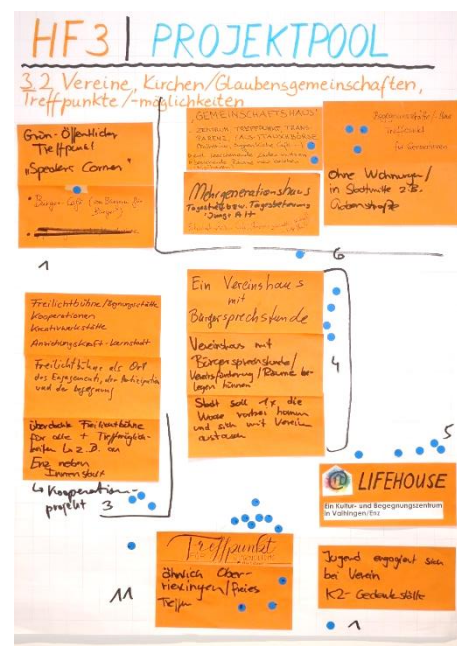 HF3 | PROJEKTPOOL
3.2 Vereine, Kirchen/Glaubensgemeinschaften,
Treffpunkte/-möglichkeiten
Grün-Öffentlicher
Treffpunkt
"Speakers Corner"
• Bürger-Café (von Bürgern für
Bürger)
1
"GEMEINSCHAFTSHAUS"
ZENTRUM TREFFPUNKTE TRANS
PARENZ
Mehrgenerationshaus
Tagestreff bzw. Tagesbetreuung
Jung + Alt
für Generationen
ohne Wohnungen/
in Stadtmitte z.B.
6
Freilichtbühne/Begegnungsstätte
Kooperationen
Kreativwerkstätte
Anziehungskraft-Kernstadt
Freilichtbühne als Ort
des Engagements, der Partizipation
und der Begegnung
überdachte Freilichtbühne
für alle + Treffmöglich-
keiten z.B. an
Enz neben
Innenstadt
↳ Kooperation-
projekt 3
Ein Vereinshaus
mit
Bürgersprechstunde
Vereinshaus mit
Bürgersprechstunde/
Vereinsförderung/Räume be-
legen können
Stadt soll 1x die
Woche vorbei kommen
und sich mit Verein
austauschen
4
5
LIFEHOUSE
Ein Kultur- und Begegnungszentrum
in Vaihingen/Enz
Treffpunkt
ähnlich Ober-
riexingen/freies
Treffen
11
Jugend engagiert sich
bei Verein
KZ-Gedenkstätte
1